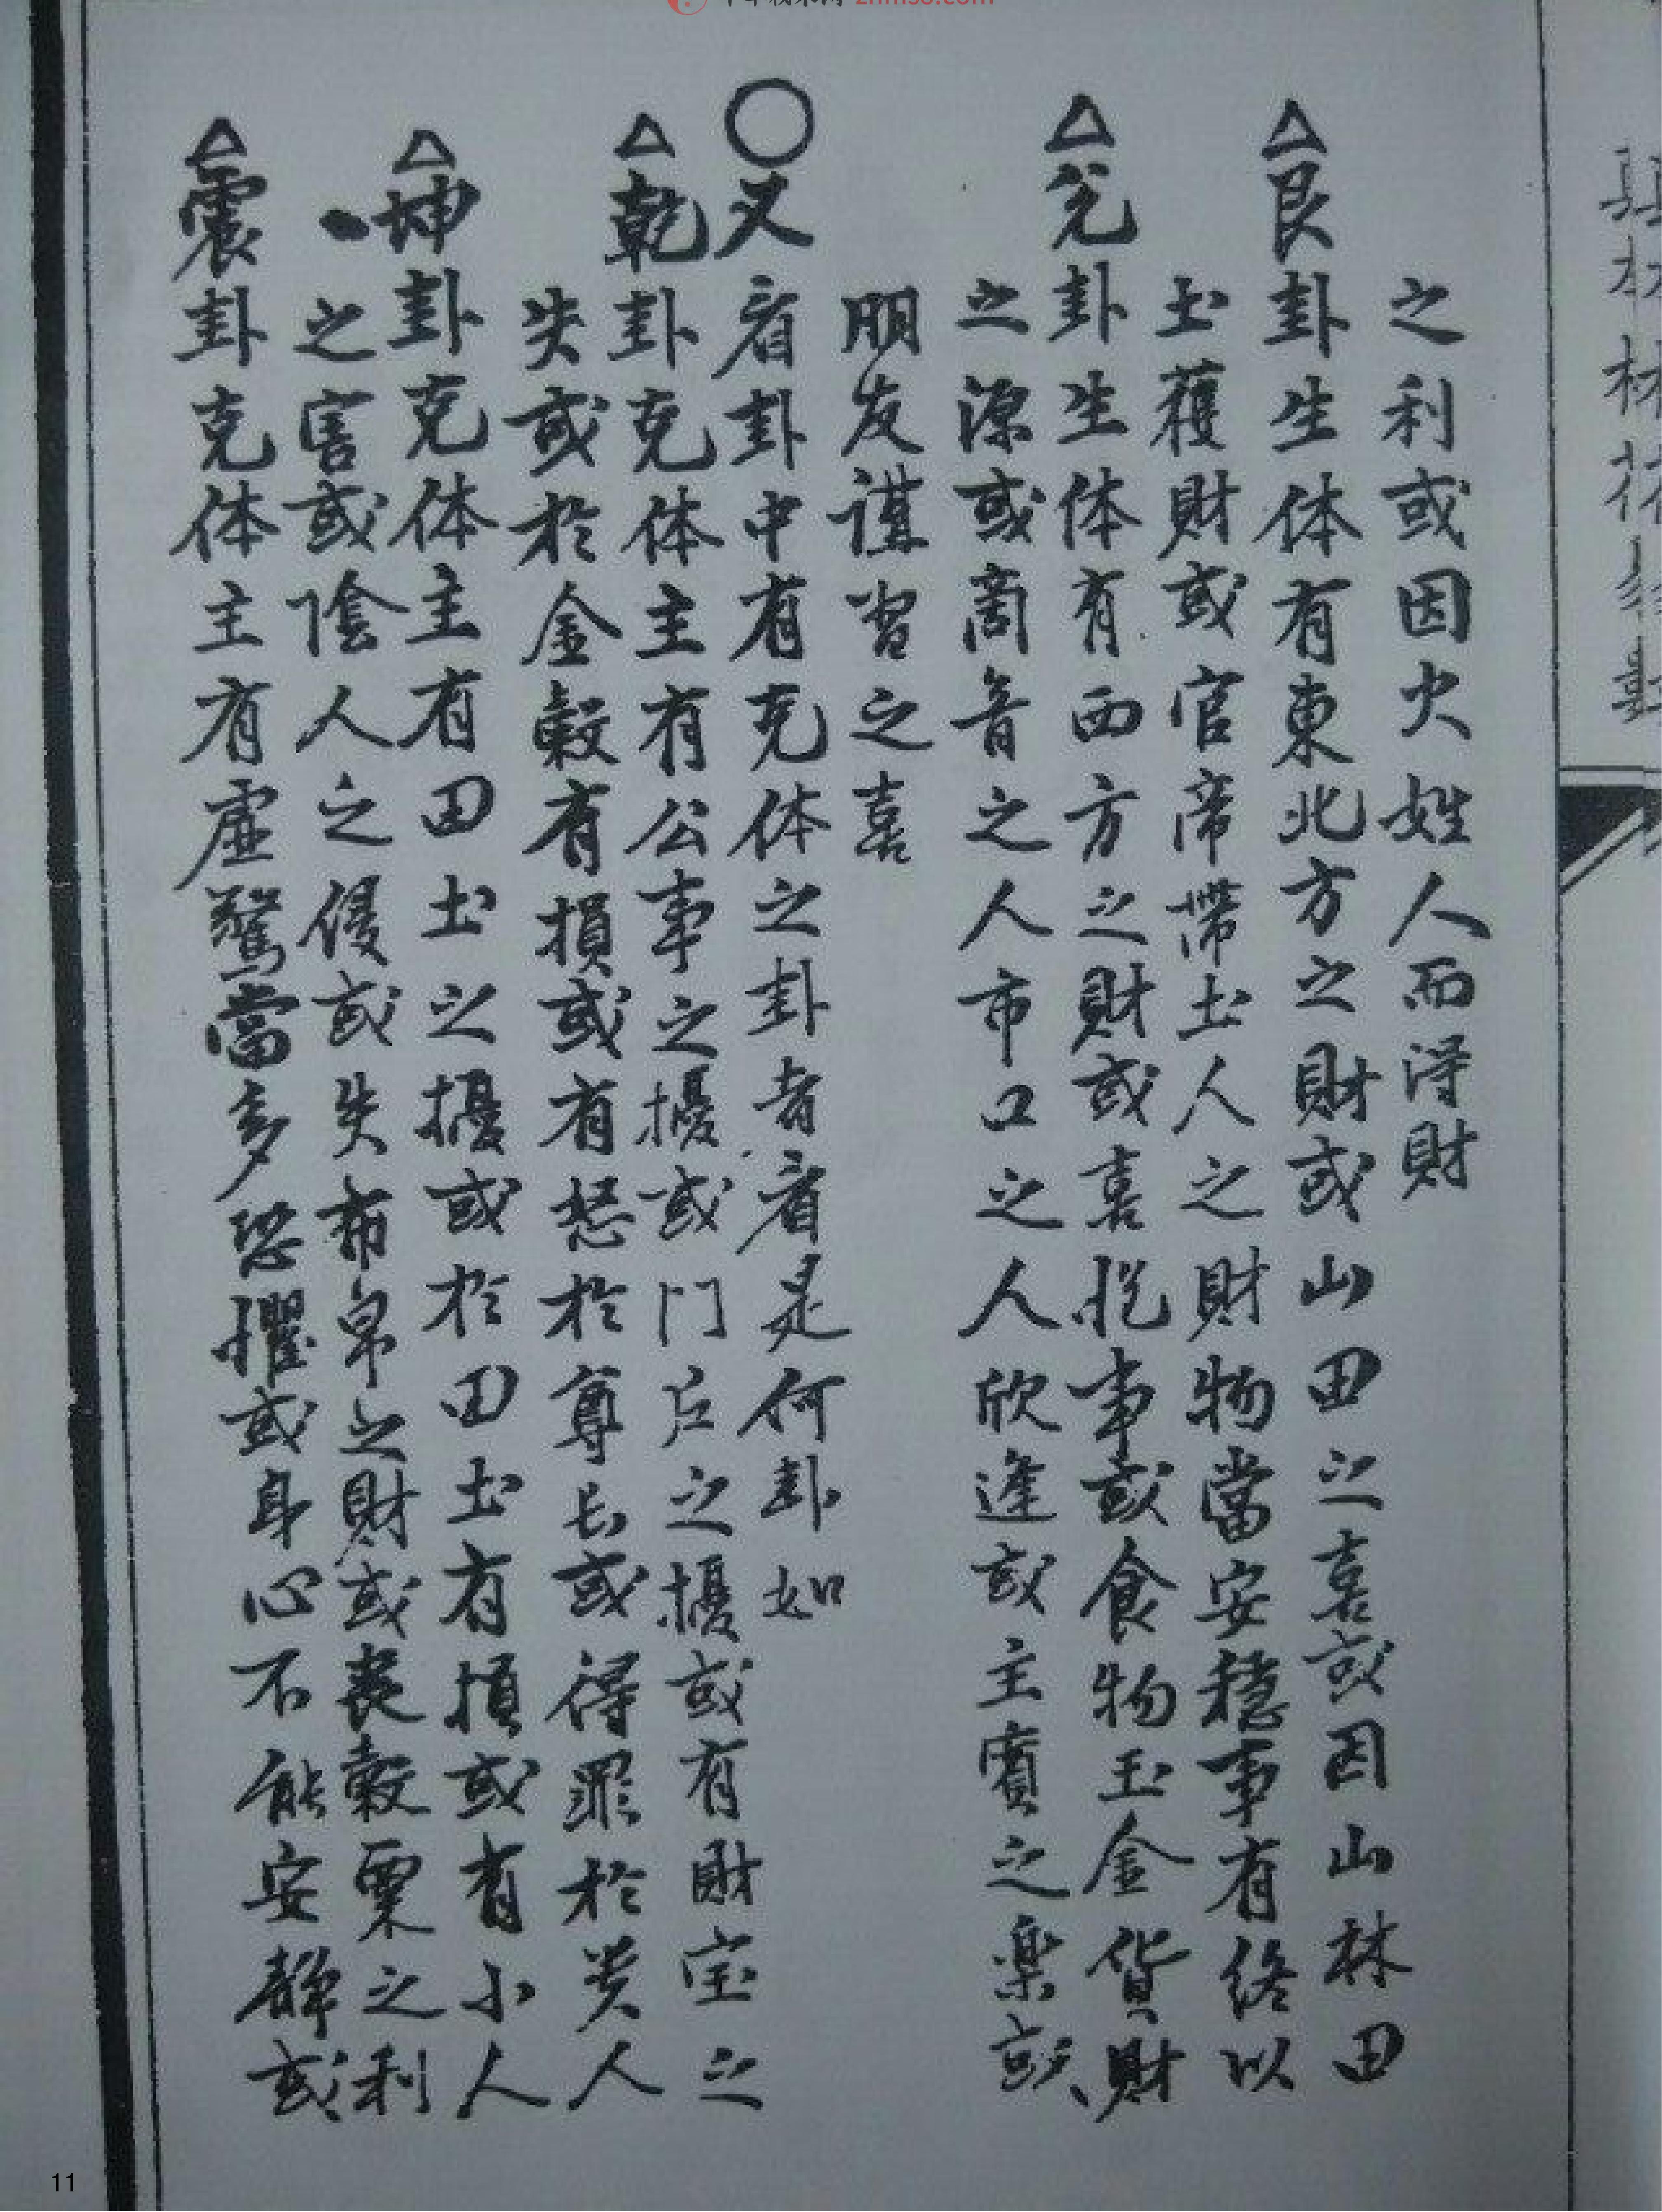 之利或因火姓人而得財
△艮卦生体有東北方之財或山田之喜或因山林田
土獲財或官帝帶土人之財物當安穩事有終以
△兌卦生体有西方之財或喜悅事或食物玉金貨財
之源或商音之人市口之人欣逢或主賓之樂或
朋友講習之喜
○又看卦中有克体之卦者看是何卦如
△乾卦克体主有公事之擾或门户之擾或有財宝之
失或於金穀有損或有怒於尊长或得罪於贵人
△坤卦克体主有田土之擾或於田土有損或有小人
之害或陰人之侵或失布帛之財或喪穀粟之利
△震卦克体主有虛驚當多恐懼或身心不能安靜或
znms8.com
11